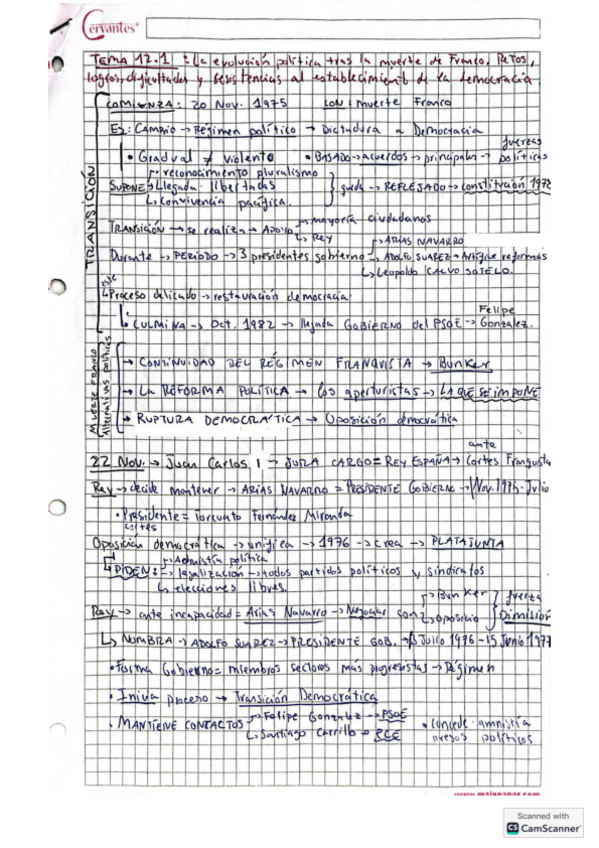 Cervantes
TEMA 12.1: La evolución política tras la muerte de Franco. Retos,
logros, dificultades y resistencias al establecimiento de la democracia.
TRANSICIÓN
COMIENZA: 20 Nov. 1975 CON: muerte Franco
ES: CAMBIO → Régimen político → Dictadura a Democracia
• Gradual ≠ violento • BASADO → acuerdos → principales → fuerzas políticas
SUPONE → reconocimiento pluralismo
↳ Llegada libertades
↳ Convivencia pacífica. } queda → REFLEJADO → constitución 1978
TRANSICIÓN → se realiza → APOYO → mayoría ciudadanos
↳ Rey
Durante → PERIODO → 3 presidentes gobierno → ARIAS NAVARRO
→ ADOLFO SUAREZ → Artífice reformas
↳ Leopoldo CALVO SOTELO.
este
↳ Proceso delicado → restauración democracia
↳ CULMINA → Oct. 1982 → llegada GOBIERNO del PSOE → Felipe Gonzalez.
MUERTE FRANCO
Alternativas políticas
→ CONTINUIDAD DEL RÉGIMEN FRANQUISTA → Bunker
→ La REFORMA POLÍTICA → los aperturistas → LA QUE SE IMPONE
→ RUPTURA DEMOCRÁTICA → Oposición democrática
22 Nov. → Juan Carlos I → JURA CARGO = REY ESPAÑA → ante Cortes Franquista
Rey → decide mantener → ARIAS NAVARRO = PRESIDENTE GOBIERNO → Nov. 1975 - Julio
• Presidente = Torcuato Fernández Miranda
cortes
Oposición democrática → unifica → 1976 → crea → PLATAJUNTA
↳ PIDEN: → Admistía política
→ legalización → todos partidos políticos y sindicatos
↳ elecciones libres.
Rey → ante incapacidad = Arias Navarro → Negociar con → Bunker
↳ oposicio } fuerza Dimisión
↳ NOMBRA → ADOLFO SUAREZ → PRESIDENTE GOB. → 3 Julio 1976 - 15 Junio 1977
• Forma Gobierno = miembros sectores más progresistas → Régimen
• Inicia proceso → Transición Democrática
• MANTIENE CONTACTOS → Felipe Gonzalez → PSOE
↳ Santiago Carrillo → PCE
• Concede amnistía
presos políticos
Scanned with
CS CamScanner